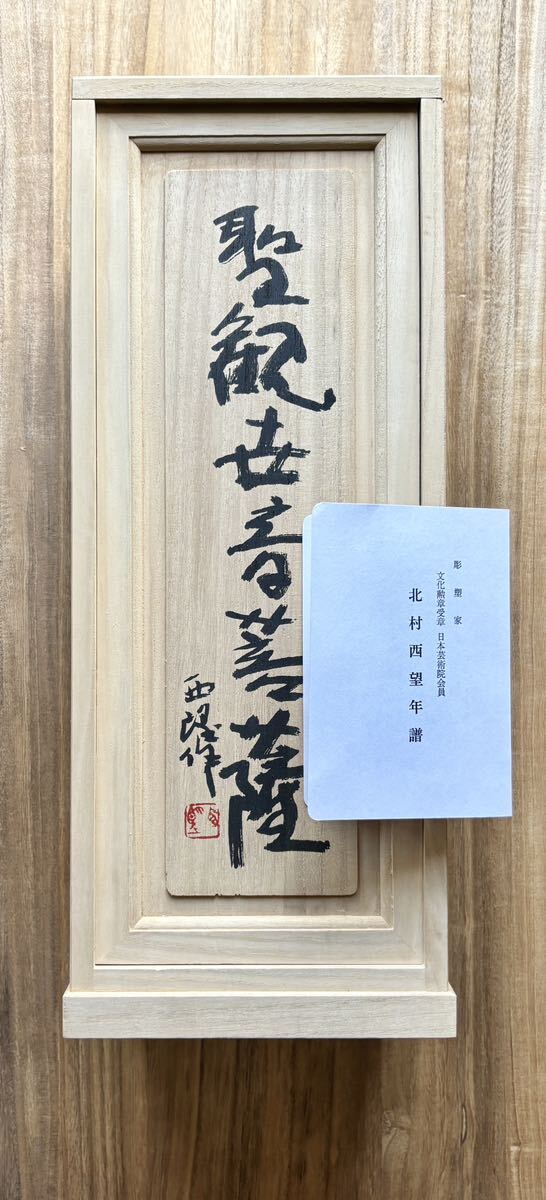 聖観世音菩薩
西望作
彫塑家
文化勲章受章 日本芸術院会員
北村西望年譜